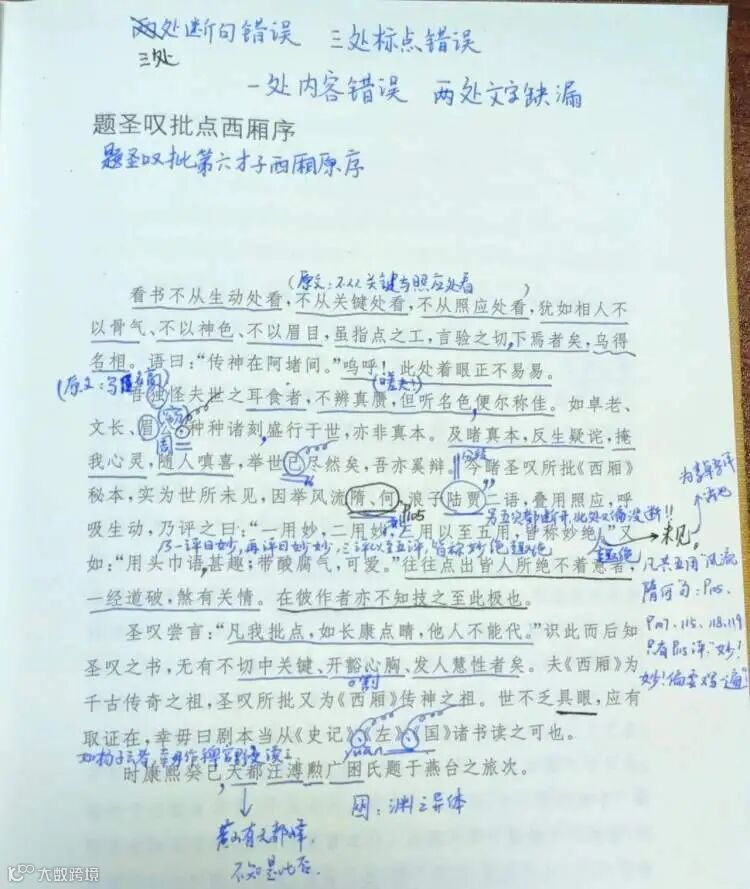 两处断句错误 三处标点错误
三处
一处内容错误 两处文字缺漏
题圣叹批点西厢序
题圣叹批第六才子西厢原序
(原文:不从关键与照应处看)
看书不从生动处看,不从关键处看,不从照应处看,犹如相人不
以骨气、不以神色、不以眉目,虽指点之工,言验之切下焉者矣,乌得
名相。语曰:“传神在阿堵间。”呜呼!此处着眼正不易易。
吾独怪夫世之耳食者,不辨真赝,但听名色便尔称佳。如卓老、
文长、眉公种种诸刻盛行于世,亦非真本。及睹真本,反生疑诧,掩
我心灵,随人嗔喜,举世已尽然矣,吾亦奚辩。今睹圣叹所批《西厢》
分段
秘本,实为世所未见,因举风流隋、何,浪子陆贾二语,叠用照应,呼
P105
吸生动,乃评之曰:“一用妙,二用妙,三用以至五用,皆称妙绝”,又
乃一评曰妙,再评曰妙妙,三评以至五评,皆称妙绝趣绝
趣绝
未见
如:“用头巾语甚趣;带酸腐气,可爱。”往往点出皆人所绝不着意者,
一经道破,煞有关情。在彼作者亦不知技之至此极也。
凡共五用“风流
隋何”句:P105、
P107、115、118、119
只有P115评“妙!
圣叹尝言:“凡我批点,如长康点睛,他人不能代。”识此而后知
圣叹之书,无有不切中关键、开豁心胸、发人慧性者矣。夫《西厢》为
割
千古传奇之祖,圣叹所批又为《西厢》传神之祖。世不乏具眼,应有
取证在,幸毋曰剧本当从《史记》《左》《国》诸书读之可也。
yuān
时康熙癸巳天都汪溥勲广囦氏题于燕台之旅次。
囦:渊之异体
黄山有天都峰
不知是此否。